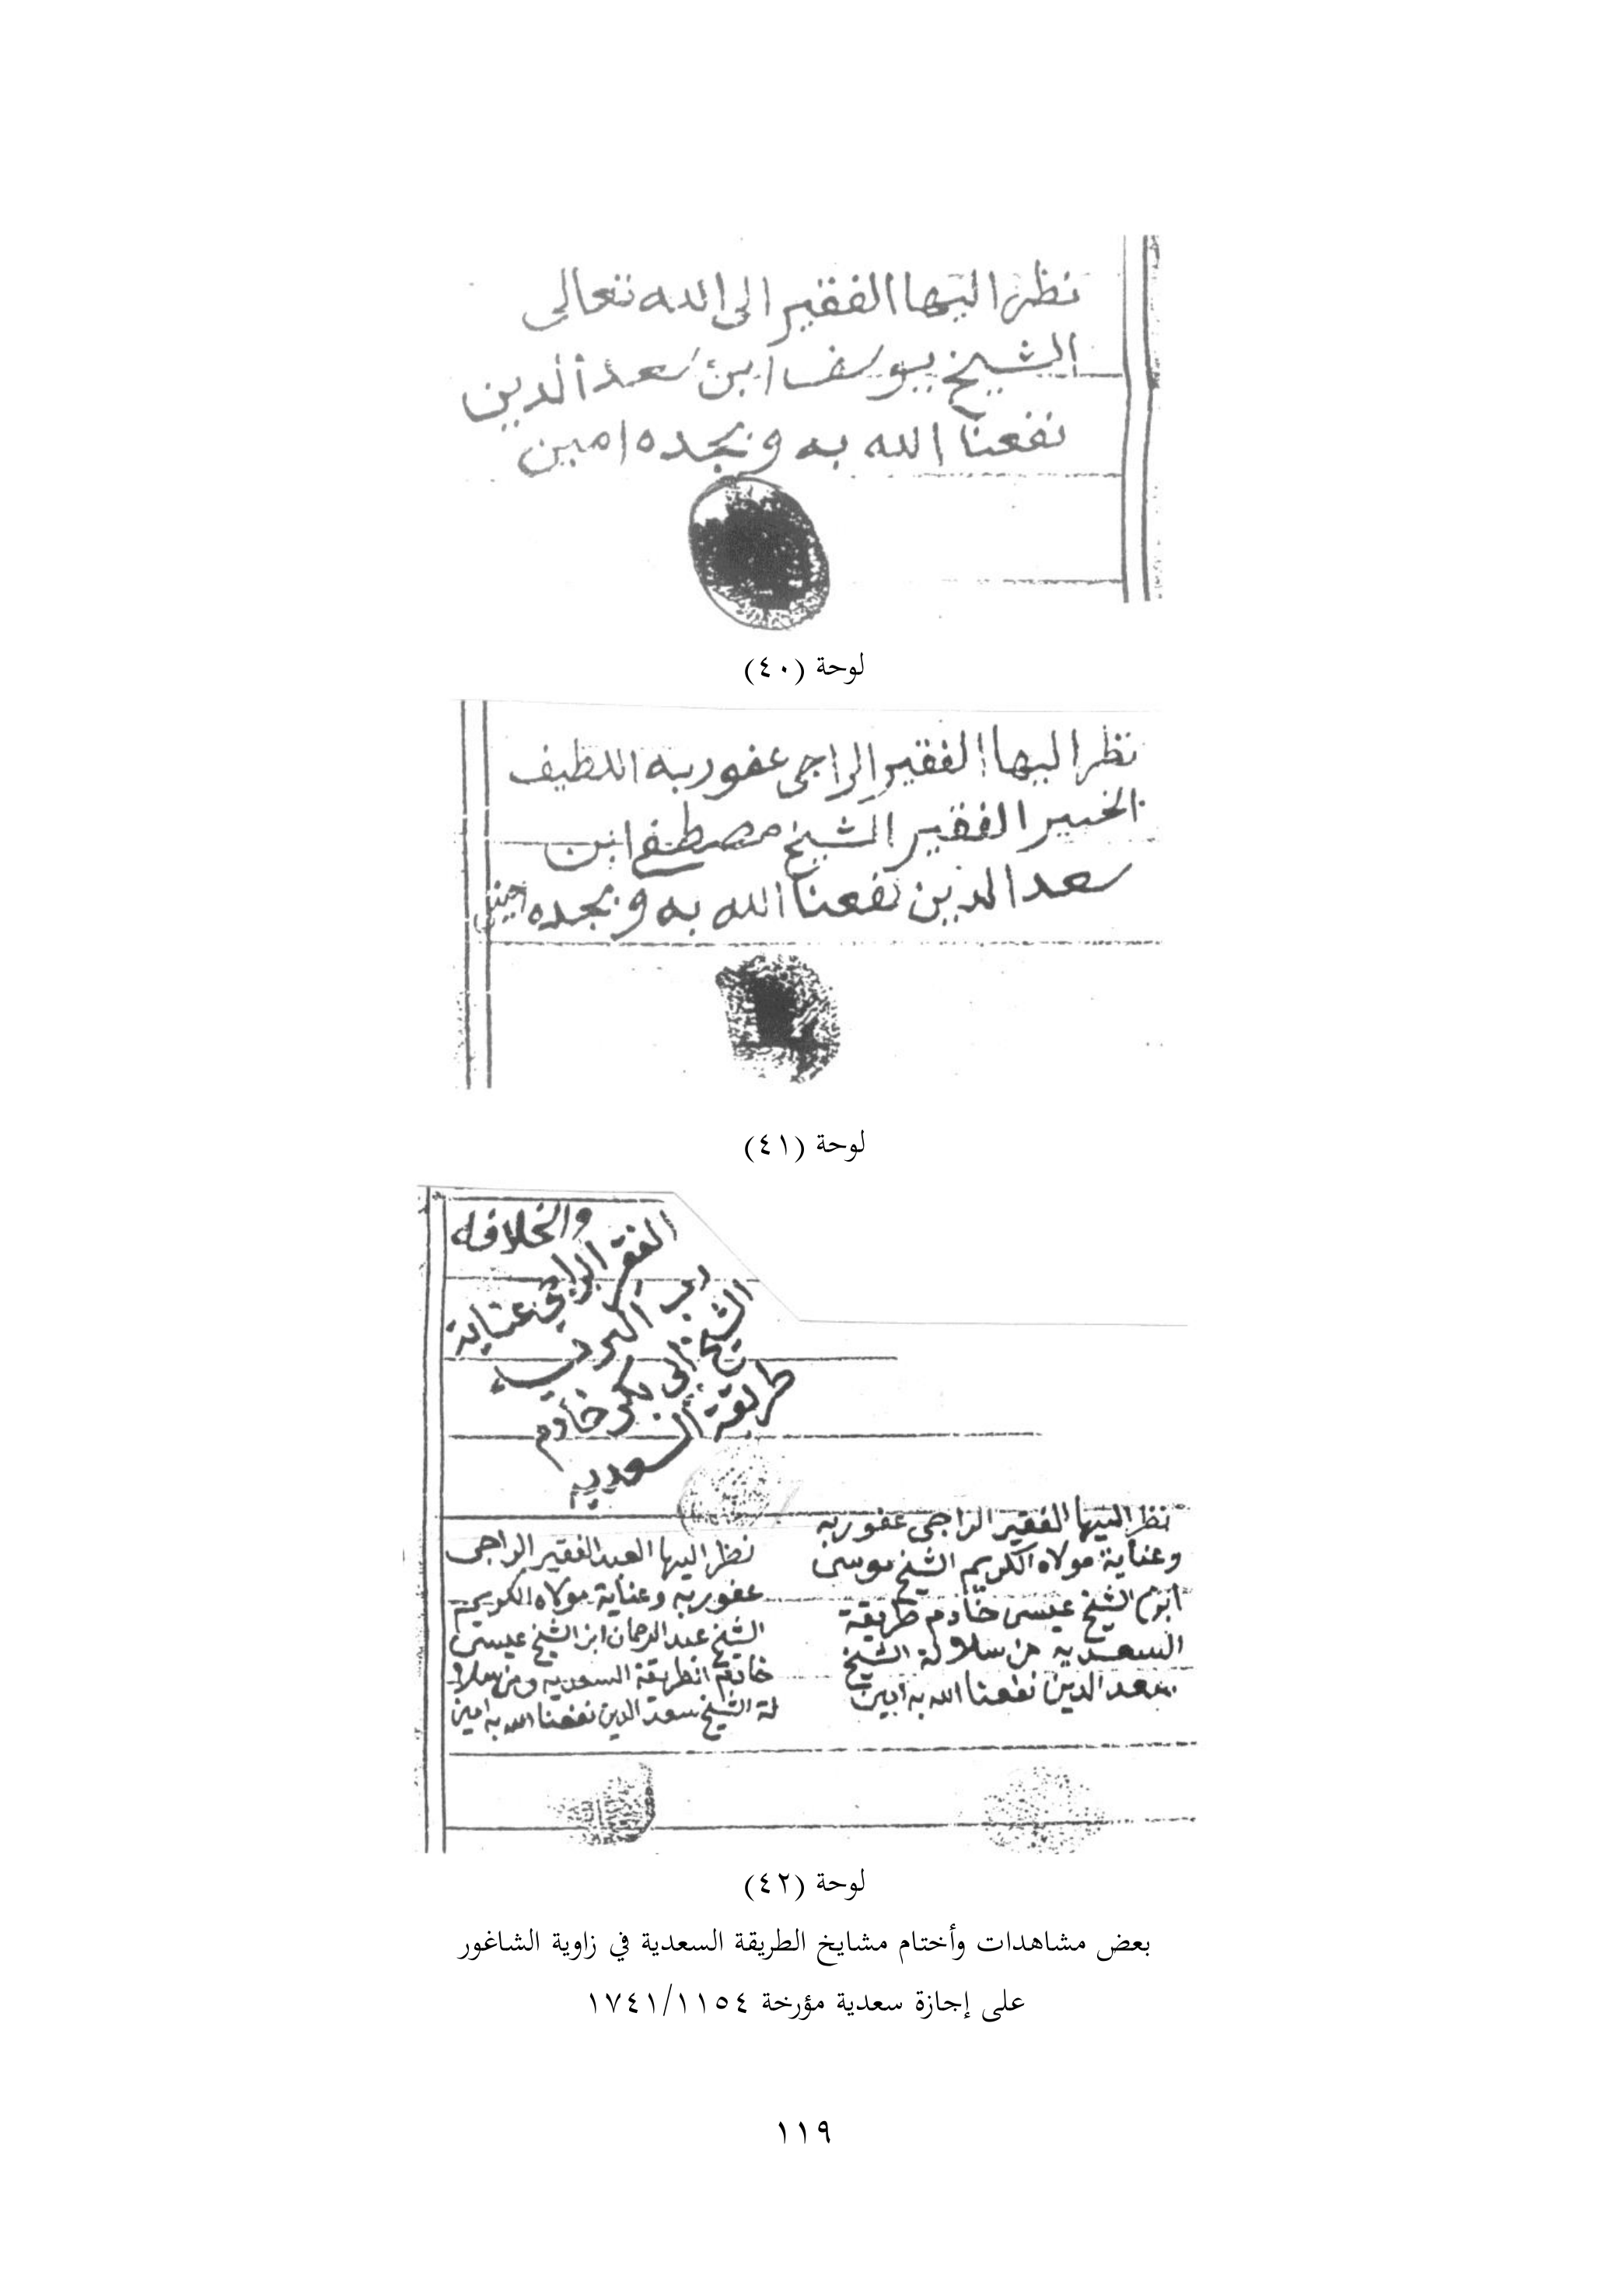 نظر اليها الفقير الى الله تعالى
الشيخ يوسف ابن سعد الدين
نفعنا الله به وبجده امين
لوحة (٤٠)
نظر اليها الفقير الراجى عفو ربه اللطيف
الخبير الفقير الشيخ مصطفى ابن
سعد الدين نفعنا الله به وبجده
لوحة (٤١)
والخلافه
الفقر الراجى عناية
الشيخ ابى بكر خادم
طريقة السعديه
نظر اليها الفقير الراجى عفو ربه
وعناية مولاه الكريم الشيخ موسى
ابن الشيخ عيسى خادم طريقة
السعديه من سلالة الشيخ
سعد الدين نفعنا الله به امين
نظر اليها العبد الفقير الراجى
عفو ربه وعناية مولاه الكريم
الشيخ عبد الرحمان ابن الشيخ عيسى
خادم الطريقة السعديه ومن سلا
لة الشيخ سعد الدين نفعنا الله به امين
لوحة (٤٢)
بعض مشاهدات وأختام مشايخ الطريقة السعدية في زاوية الشاغور
على إجازة سعدية مؤرخة ١٧٤١/١١٥٤
١١٩